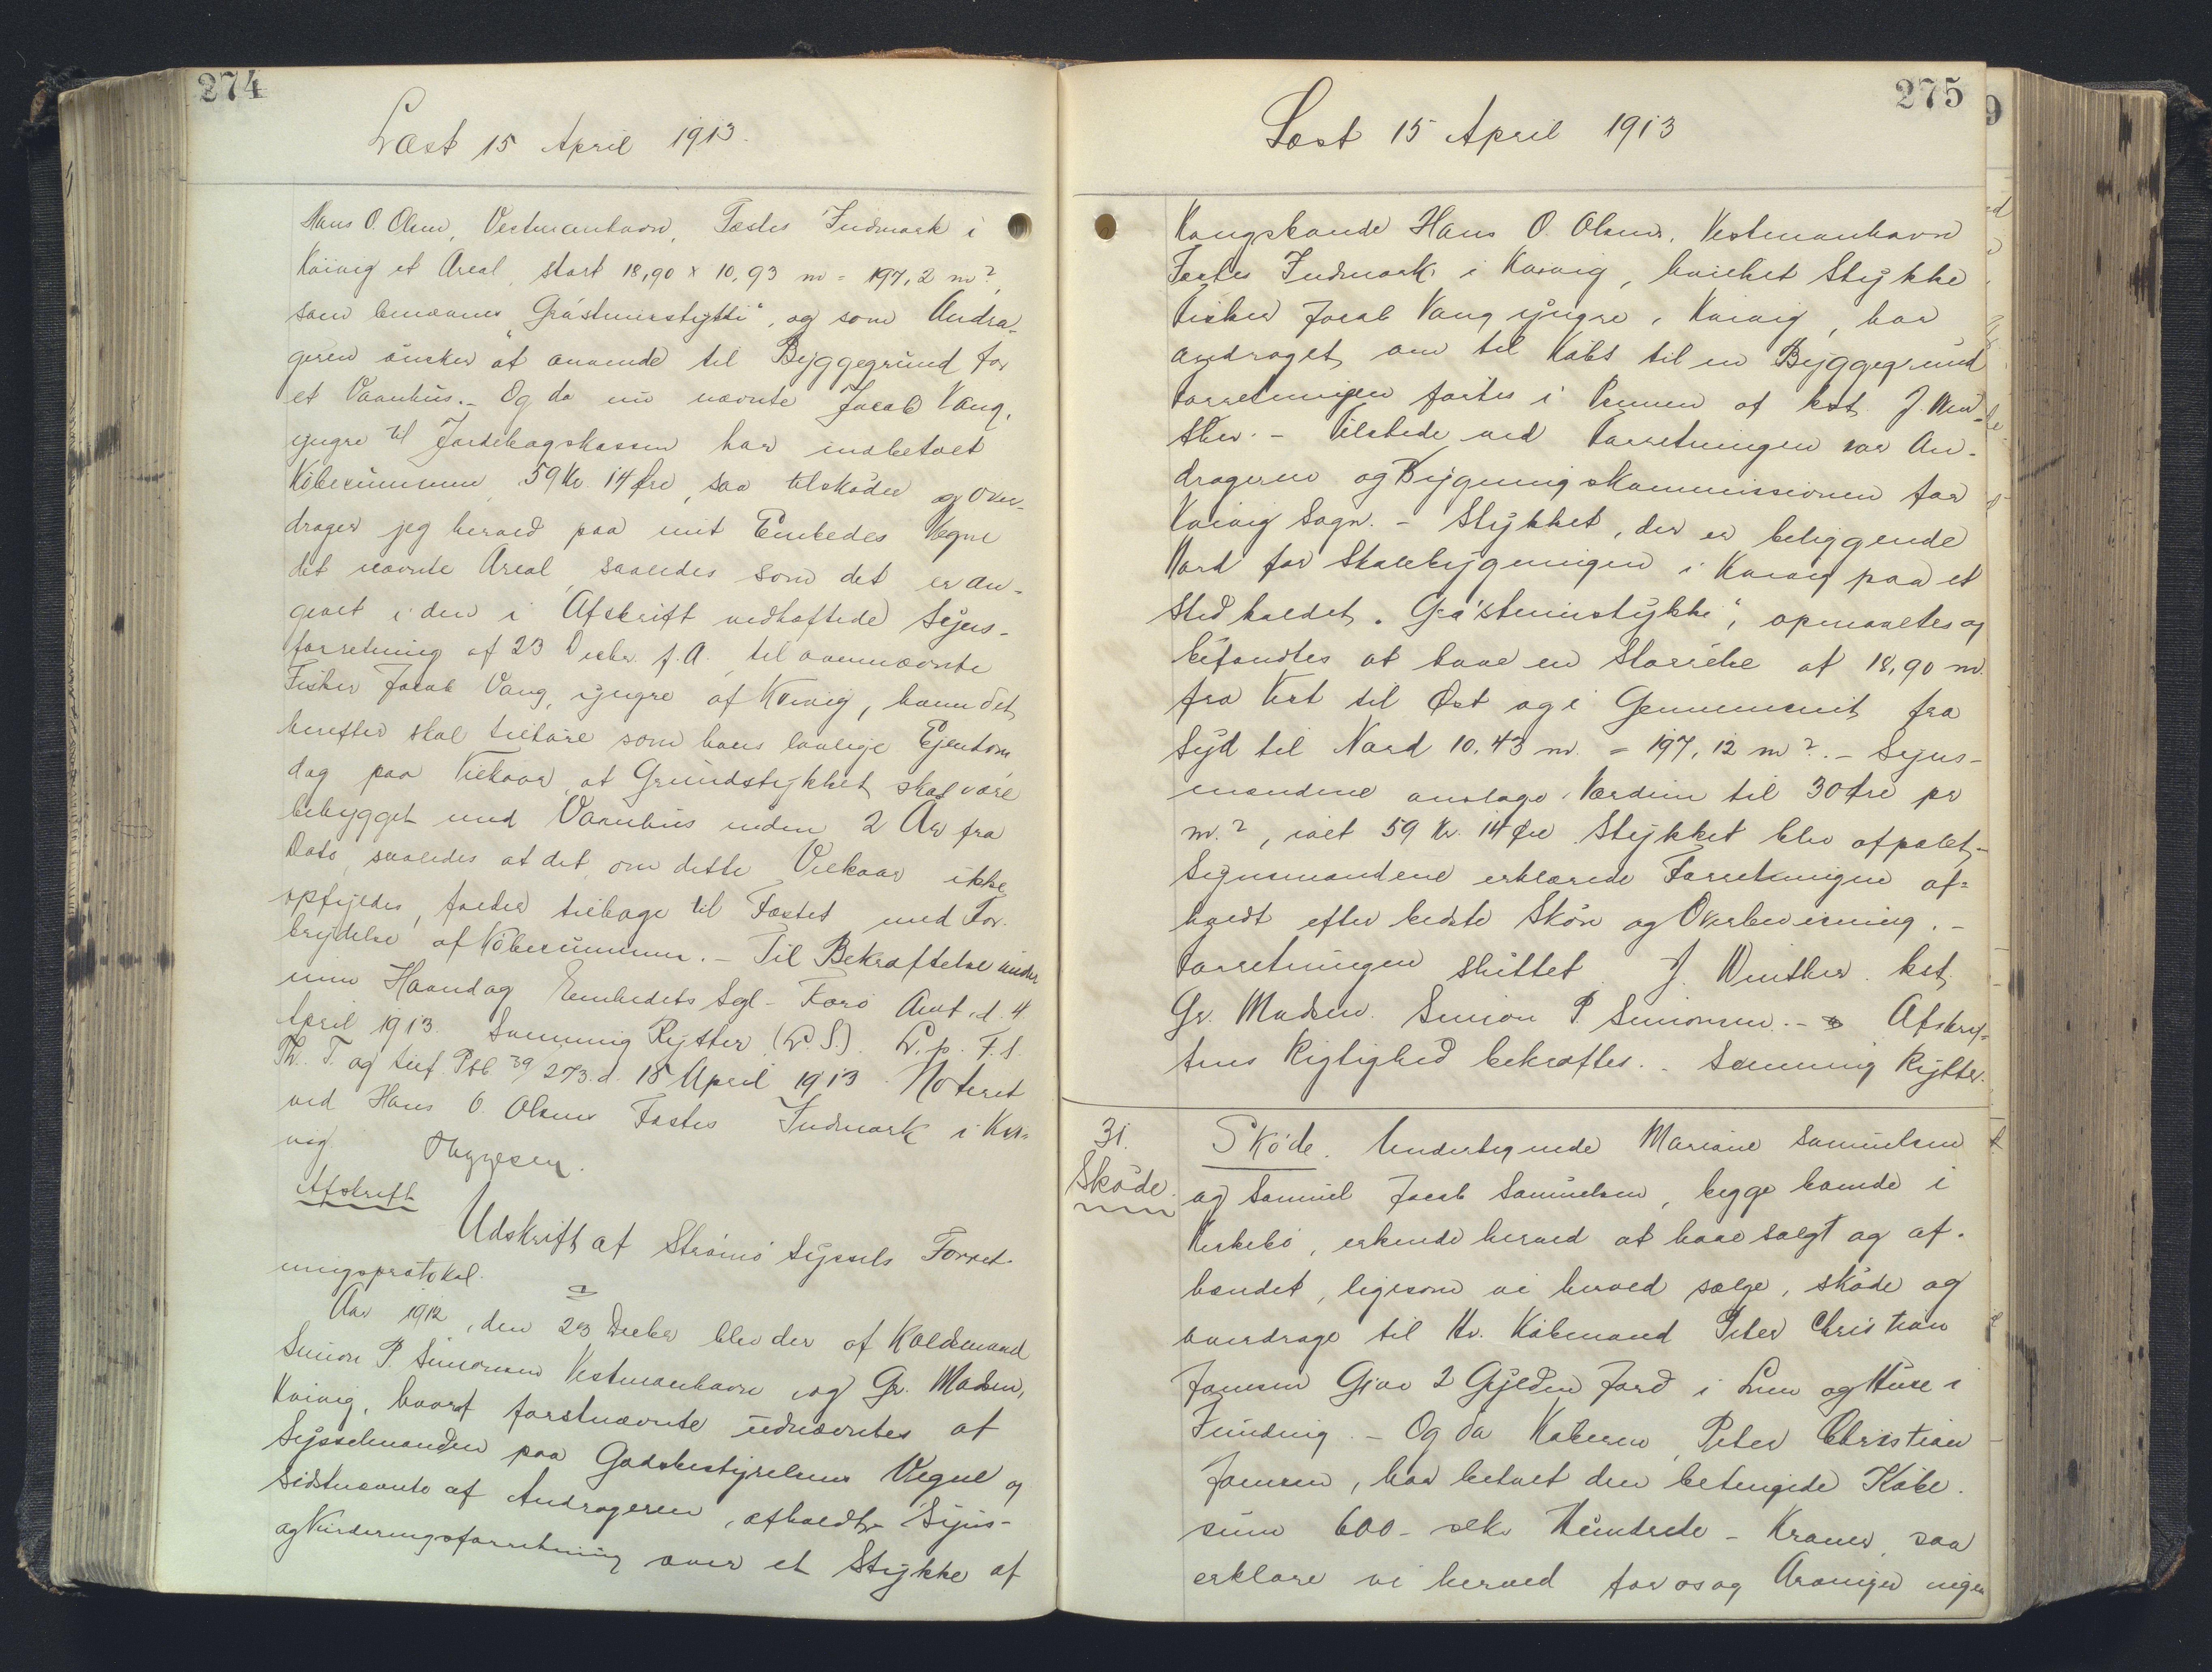 274
Læst 15 April 1913.
Hans O. Olsen, Vestmanhavn, Fæstes Indmark i
Kvivig et Areal, stort 18,90 x 10,93 m = 197,2 m²,
som benævnes "Grásteinsstykki", og som Andra-
geren ønsker at anvende til Byggegrund for
et Vaanhus. - Og da nu nævnte Jacob Vang,
yngre til Jordebogskassen har indbetalt
Købesummen 59 Kr. 14 Øre, saa tilskøder og over-
drager jeg herved paa mit Embedes Vegne
det nævnte Areal, saaledes som det er an-
givet i den i Afskrift vedhæftede Syns-
forretning af 23 Decbr. f.A. til ovennævnte
Fisker Jacob Vang, yngre af Kvivig, hvem det
herefter skal tilhøre som hans lovlige Ejendom
dog paa Vilkaar, at Grundstykket skal være
bebygget med Vaanhus inden 2 Aar fra
Dato, saaledes at det, om dette Vilkaar ikke
opfyldes, falder tilbage til Fæstet med For-
brydelse af Købesummen. - Til Bekræftelse under
min Haand og Embedets Segl - Færø Amt, d. 4
April 1913. Svenning Rytter (L.S.). L. p. F. S.
Th. T. og tilf. Ptl 39/273. d. 15 April 1913. Noteret
ved Hans O. Olsens Fæstes Indmark i Kvi-
vig.
Afskrift
Udskrift af Strømø Syssels Forret-
ningsprotokol.
Aar 1912, den 23 Decber blev der af Kaldsmand
Simon P. Simonsen Vestmanhavn og Gr. Madsen,
Kvivig, hvoraf førstnævnte udnævntes af
Sysselmanden paa Godsbestyrelsens Vegne og
sidstnævnte af Andrageren, afholdt Syns-
og Vurderingsforretning over et Stykke af
275
Læst 15 April 1913
Kongsbonde Hans O. Olsens, Vestmanhavn
Fæstes Indmark i Kvivig, hvilket Stykke
Fisker Jacob Vang yngre, Kvivig, har
andraget om til Købs til en Byggegrund
Forretningen førtes i Pennen af kst. J. Win-
ther. - Tilstede ved Forretningen var An-
drageren og Bygningskommissionen for
Kvivig Sogn. - Stykket, der er beliggende
Nord for Skolebygningen i Kvivig paa et
Sted kaldet "Grásteinsstykki", opmaaltes og
befandtes at have en Størrelse af 18,90 m.
fra Vest til Øst og i Gennemsnit fra
Syd til Nord 10,43 m. = 197,12 m². - Syns-
mændene anslage Værdien til 30 Øre pr
m.², ialt 59 Kr. 14 Øre. Stykket blev afpælet. -
Synsmændene erklærede Forretningen af-
holdt efter bedste Skøn og Overbevisning. -
Forretningen sluttet. J. Winther. kst.
Gr. Madsen. Simon P. Simonsen. - Afskrif-
tens Rigtighed bekræftes. - Svenning Rytter.
31.
Skøde.
Skøde. Undertegnede Mariane Samuelsen
og Samuel Jacob Samuelsen, begge boende i
Kirkebø, erkende herved at have solgt og af-
hændet, ligesom vi herved sælge, skøde og
overdrage til Hr. Købmand Peter Christian
Joensen Gjov 2 Gylden Jord i Lun og Huse i
Funding. - Og da Køberen, Peter Christian
Joensen, har betalt den betingede Købe-
sum 600 - seks Hundrede - Kroner, saa
erklære vi herved for os og Arvinger ingen